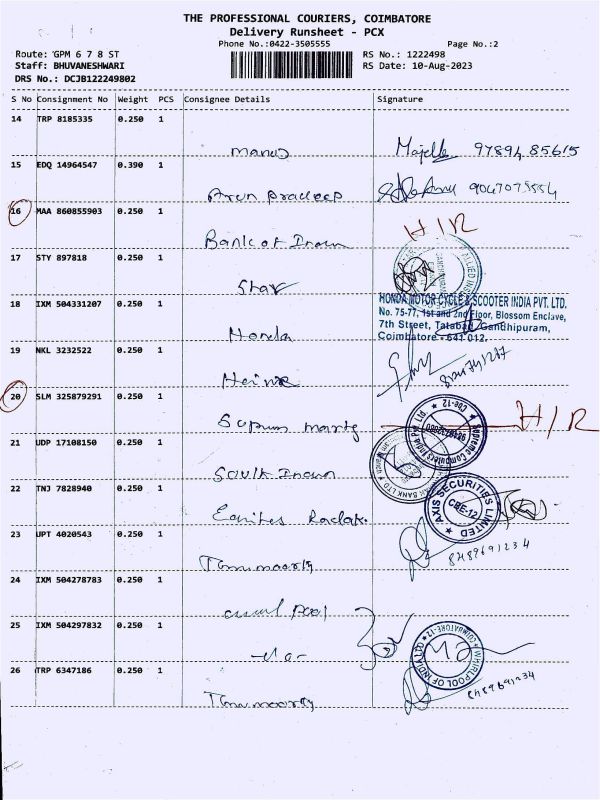 THE PROFESSIONAL COURIERS, COIMBATORE
Delivery Runsheet - PCX
Phone No.:0422-3505555 Page No.:2
Route: GPM 6 7 8 ST RS No.: 1222498
Staff: BHUVANESHWARI RS Date: 10-Aug-2023
DRS No.: DCJB122249802
S No Consignment No Weight PCS Consignee Details Signature
14 TRP 8185335 0.250 1
Manus 97894 85615
15 EDQ 14964547 0.390 1
Arun Pradeep
16 MAA 860855903 0.250 1
Bank of Indian H/R
17 STY 897818 0.250 1
Star
18 IXM 504331207 0.250 1
Honda
HONDA MOTOR CYCLE & SCOOTER INDIA PVT. LTD.
No. 75-77, 1st and 2nd Floor, Blossom Enclave,
7th Street, Tatabad, Gandhipuram,
Coimbatore - 641 012.
19 NKL 3232522 0.250 1
20 SLM 325879291 0.250 1
H/R
21 UDP 17108150 0.250 1
South Indian
22 TNJ 7828940 0.250 1
AXIS SECURITIES LIMITED
CBE-12
23 UPT 4020543 0.250 1
8489691234
24 IXM 504278783 0.250 1
25 IXM 504297832 0.250 1
WHIRLPOOL OF INDIA LTD
COIMBATORE-12
26 TRP 6347186 0.250 1
8489691234